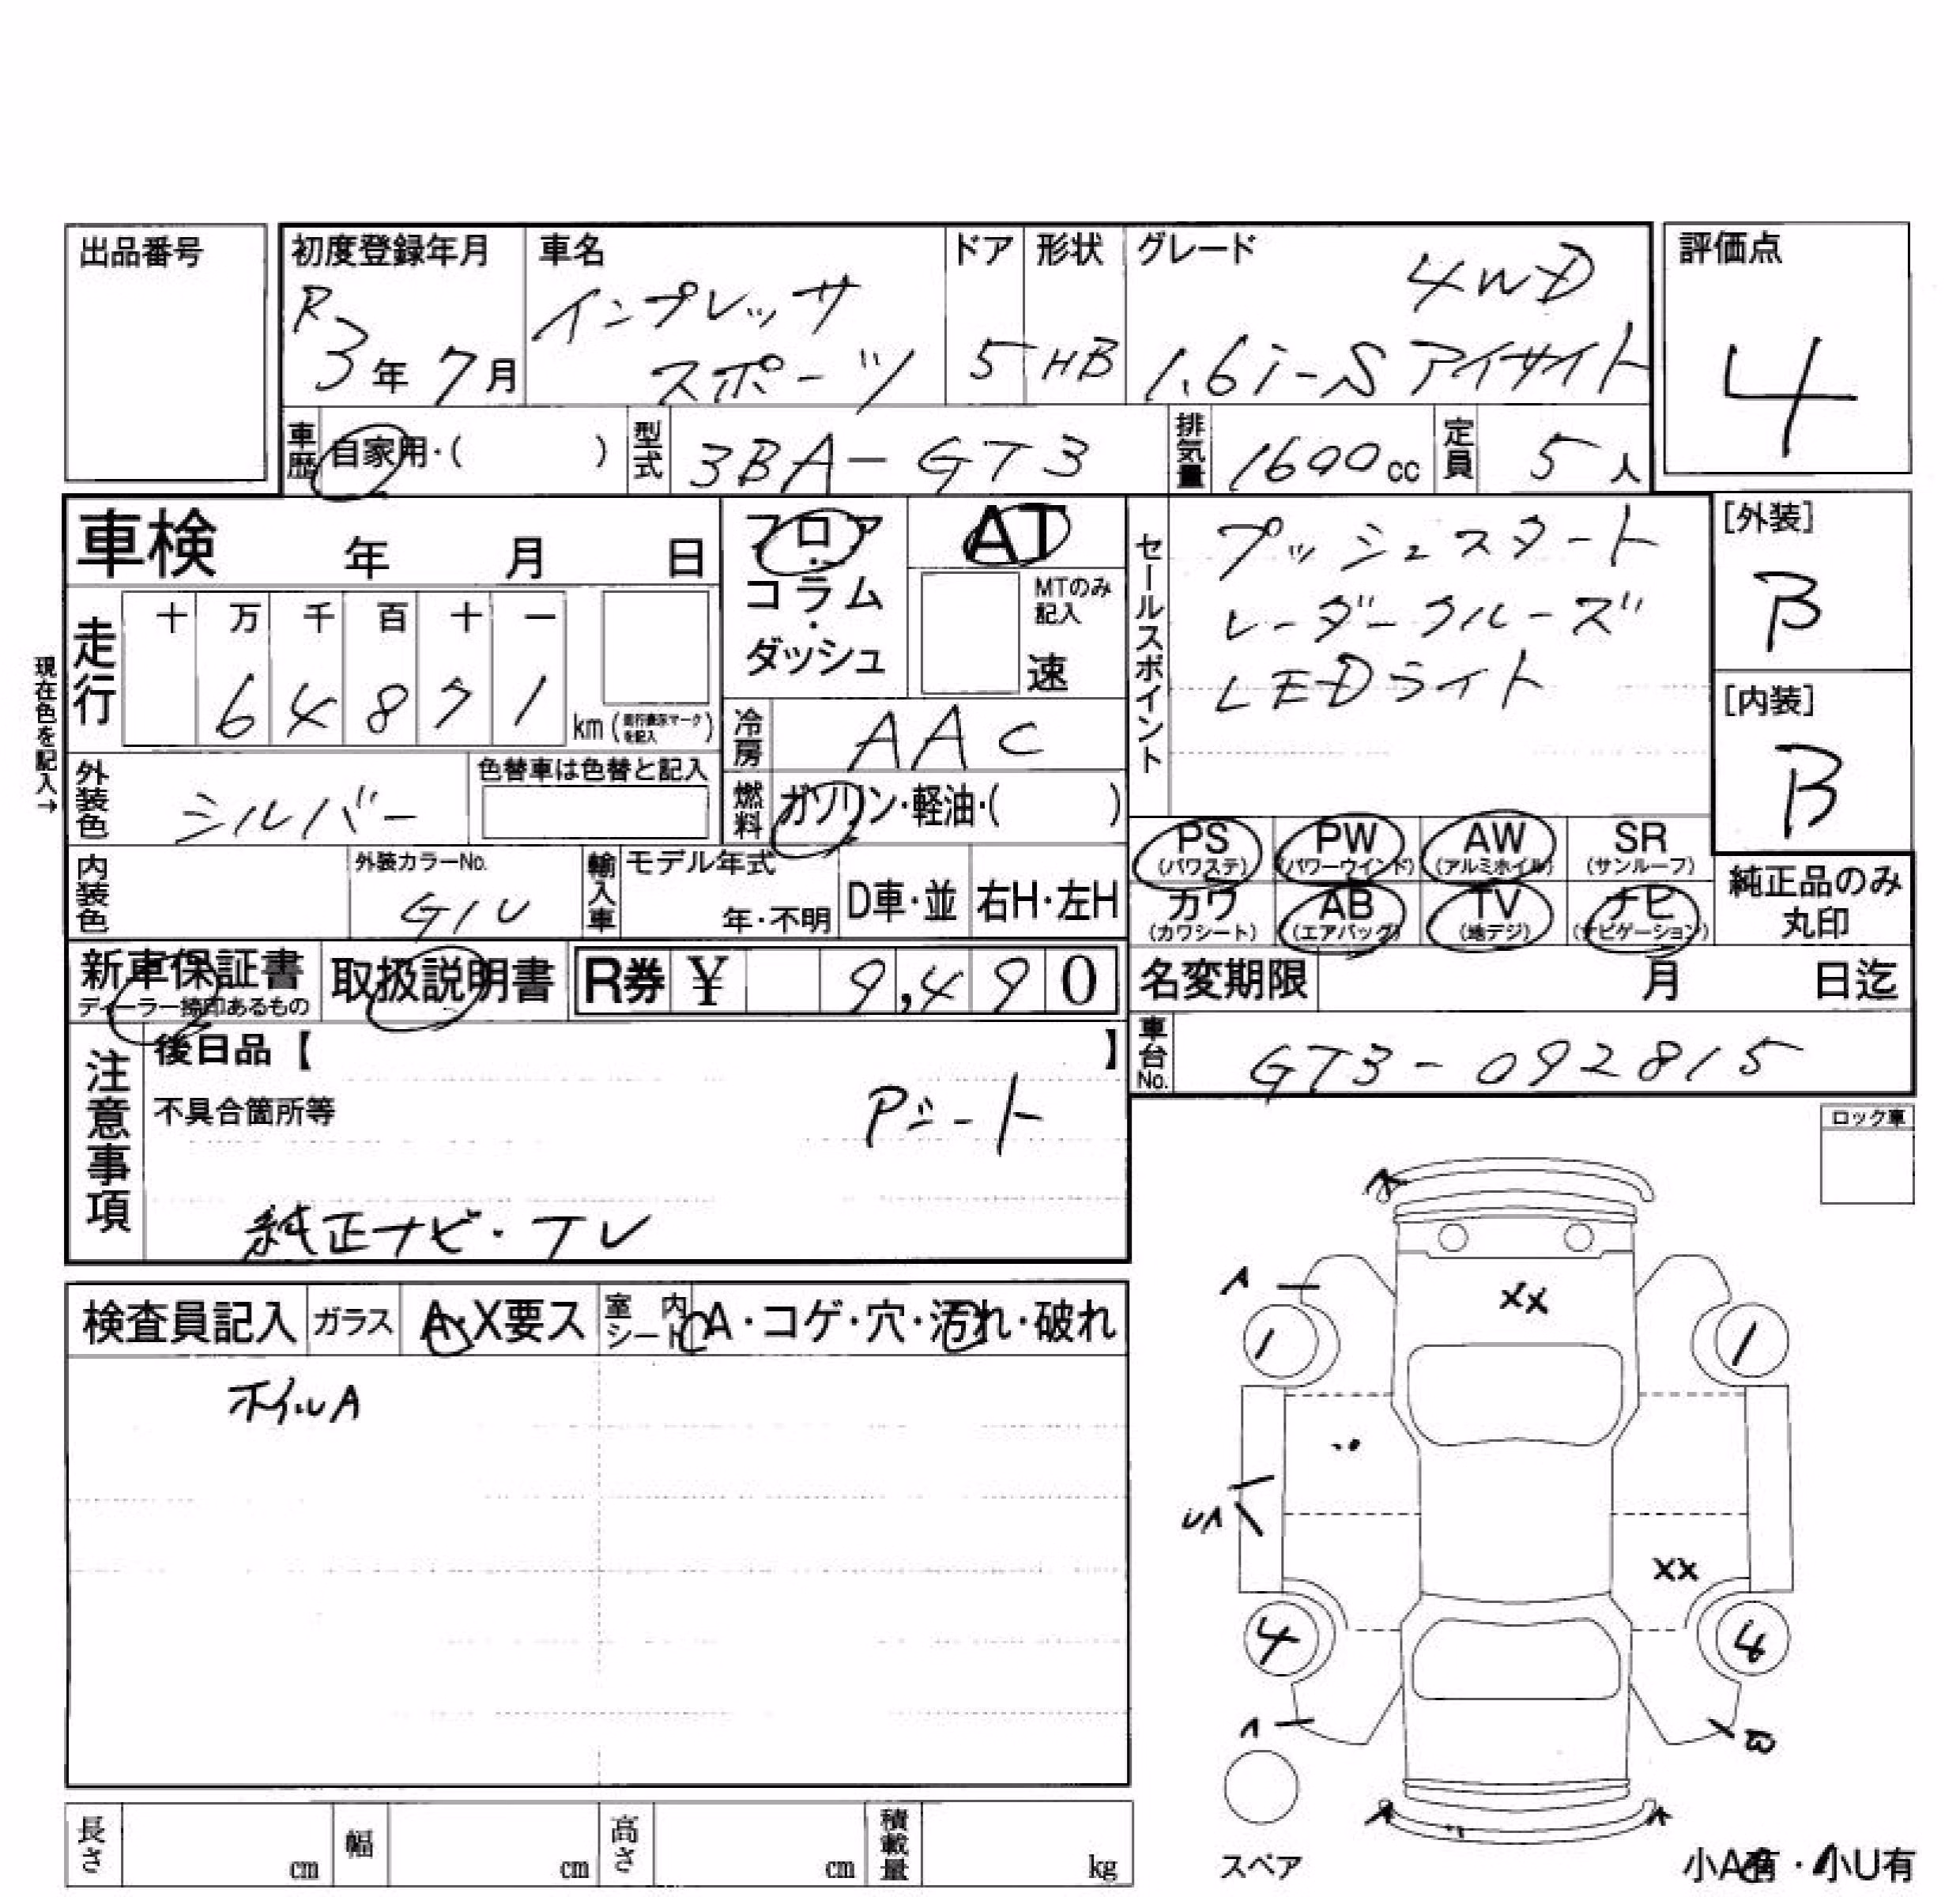 出品番号
初度登録年月 R3年7月
車名 インプレッサ スポーツ
ドア 5
形状 HB
グレード 4WD
1.6i-S アイサイト
評価点 4
車歴 自家用・( )
型式 3BA-GT3
排気量 1600cc
定員 5人
車検 年 月 日
フロア・コラム・ダッシュ
AT
MTのみ記入
速
セールスポイント
プッシュスタート
レーダークルーズ
LEDライト
[外装]
B
[内装]
B
現在色を記入→
走行 十 万 千 百 十 一
64871 km(走行表示マークを記入)
冷房 AAC
外装色 シルバー
色替車は色替と記入
燃料 ガソリン・軽油・( )
PS (パワステ)
PW (パワーウインド)
AW (アルミホイル)
SR (サンルーフ)
カワ (カワシート)
AB (エアバッグ)
TV (地デジ)
ナビ (ナビゲーション)
純正品のみ丸印
内装色
外装カラーNo. G1U
輸入車 モデル年式 年・不明
D車・並
右H・左H
新車保証書
ディーラー捺印あるもの
取扱説明書
R券 ¥ 9,490
名変期限 月 日迄
車台No. GT3-092815
注意事項
後日品【 】
不具合箇所等
Pシート
純正ナビ・TV
ロック車
検査員記入
ガラス A・X要ス
室内シート A・コゲ・穴・汚れ・破れ
ホイルA
A
A
XX
1
1
UA
XX
4
4
A
A
A
スペア
小A有・小U有
長さ cm
幅 cm
高さ cm
積載量 kg